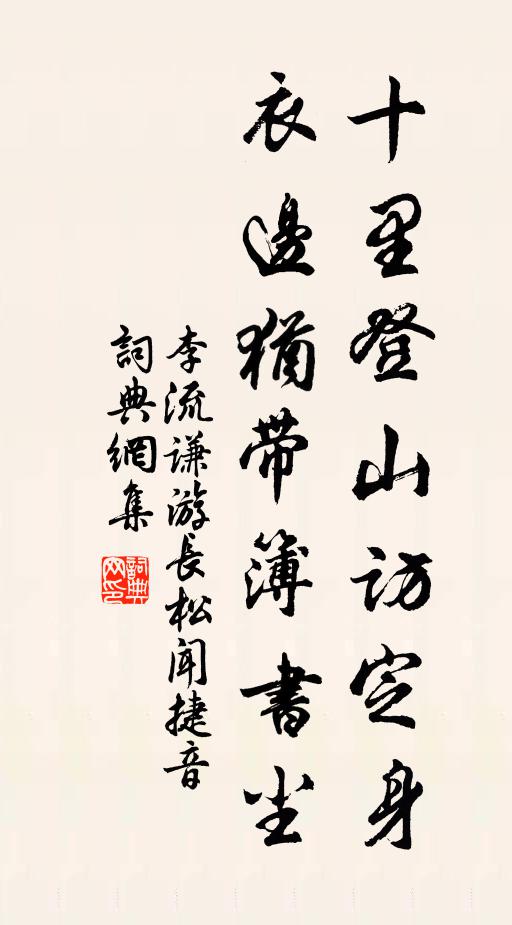 十里登山访定身
衣邊猶带簿書尘
李流谦游长松闻捷音
詞典網集
詞典网印